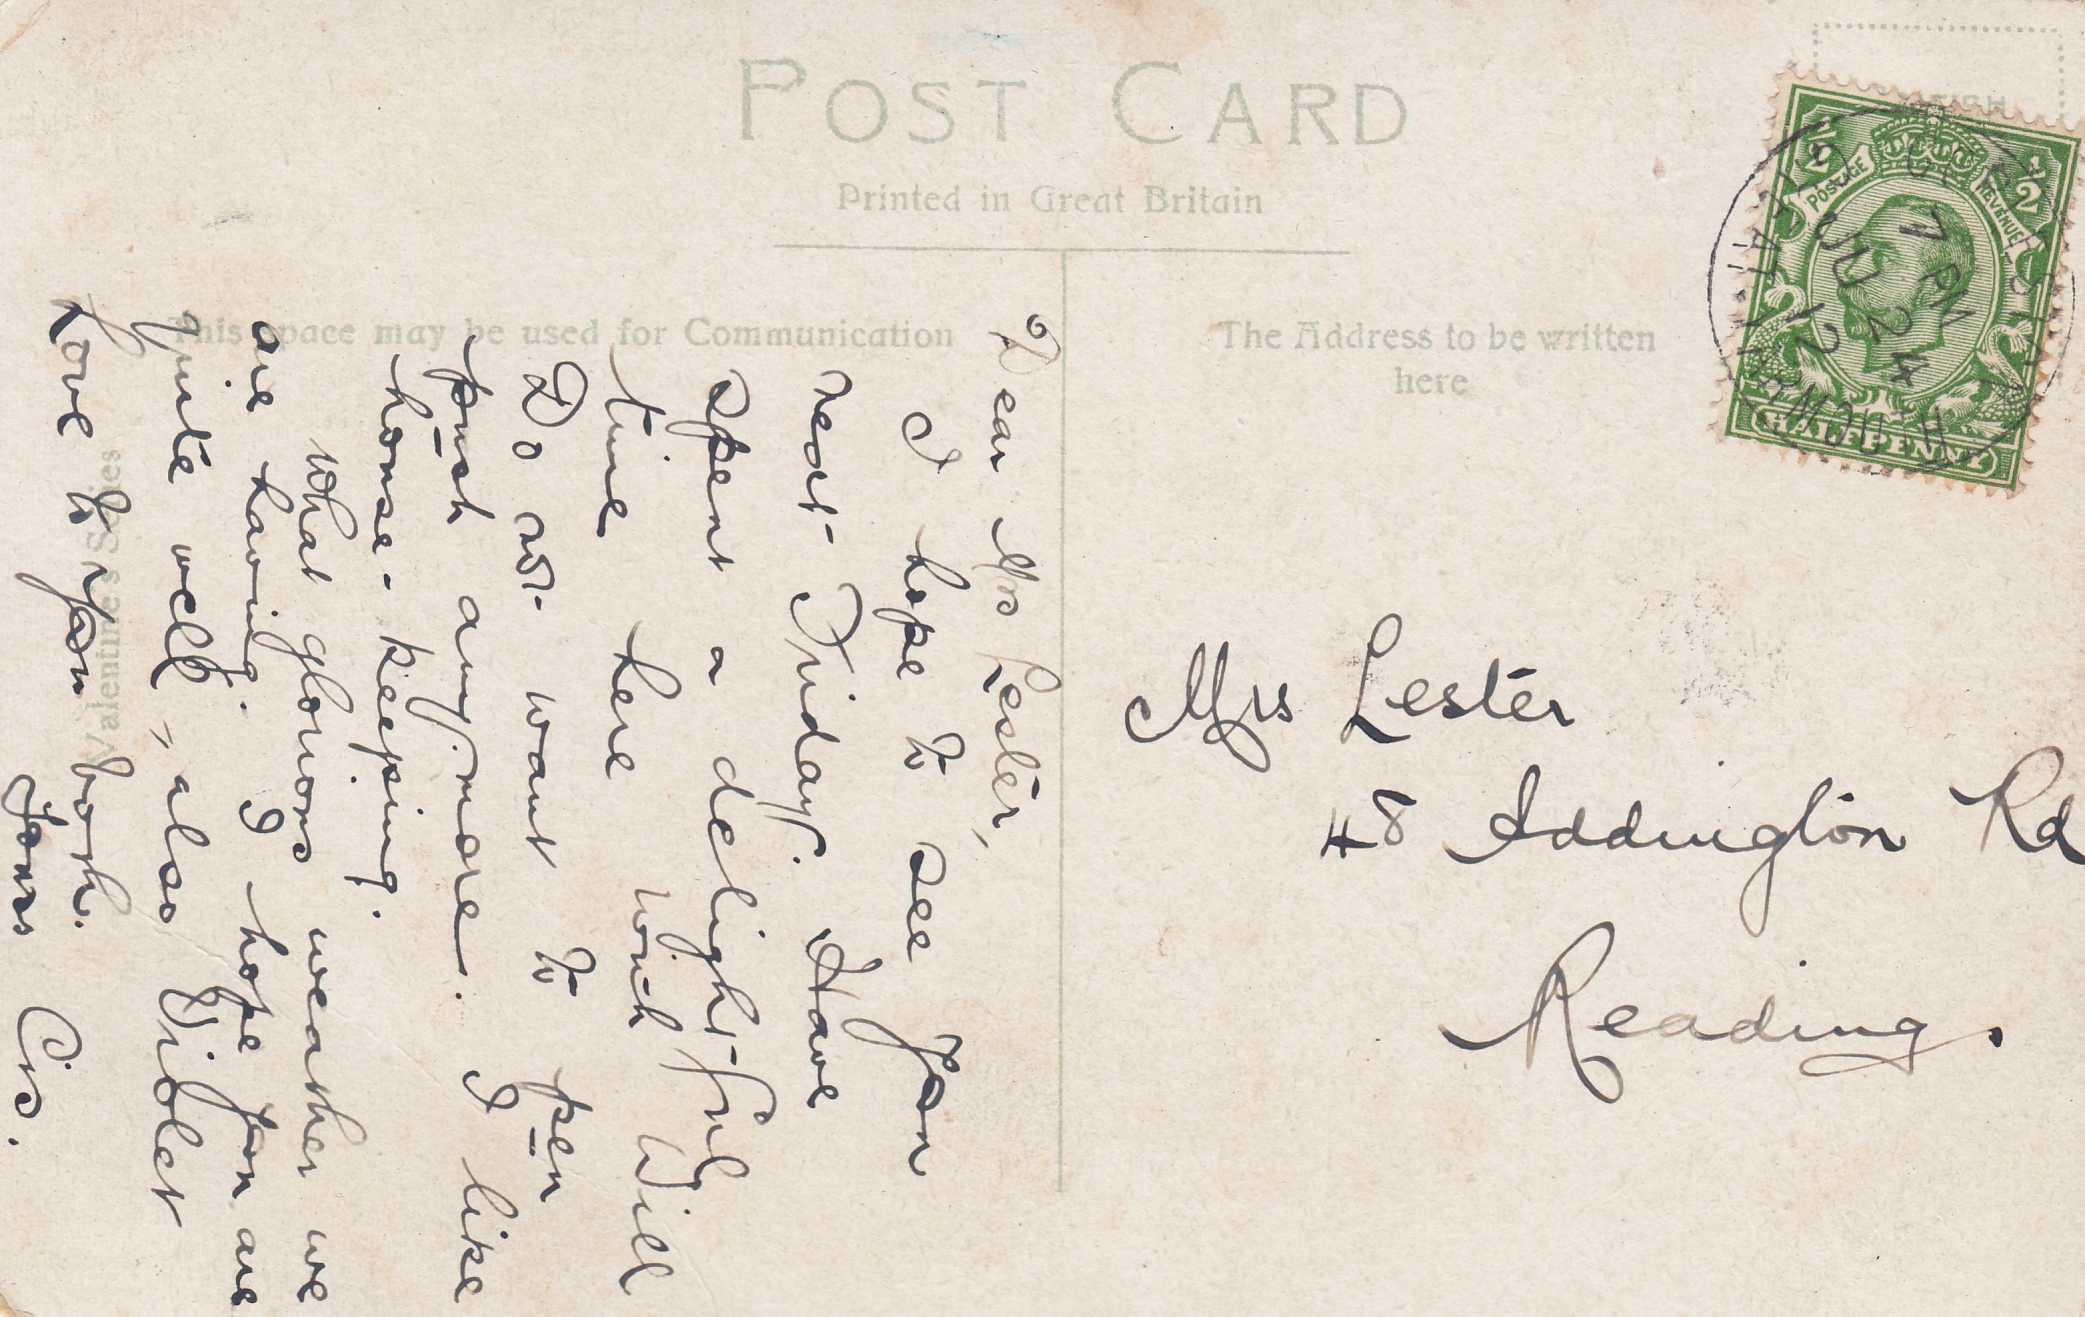 POST CARD
Printed in Great Britain
This space may be used for Communication
The Address to be written
here
Valentine's Series
POSTAGE
REVENUE
HALFPENNY
GORLESTON
7 PM
JU 24
12
GT YARMOUTH
Dear Mrs Lester,
I hope to see you
next Friday. Have
spent a delightful
time here with Will
Do not want to pen
push any more. I like
house-keeping.
What glorious weather we
are having. I hope you are
quite well, also Violet
Love to you both.
Yours Cis.
Mrs Lester
48 Addington Rd
Reading.